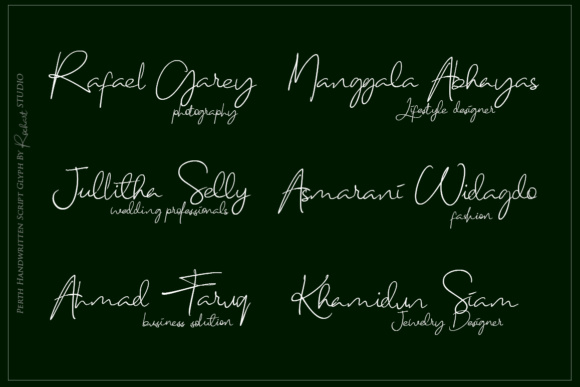 Rafael Garey
photography
Manggala Abhayas
Lifestyle designer
Jullitha Selly
wedding professionals
Asmarani Widagdo
fashion
Ahmad Faruq
business solution
Khamidun Siam
Jewelry Designer
PERTH HANDWRITTEN SCRIPT GLYPH BY STUDIO